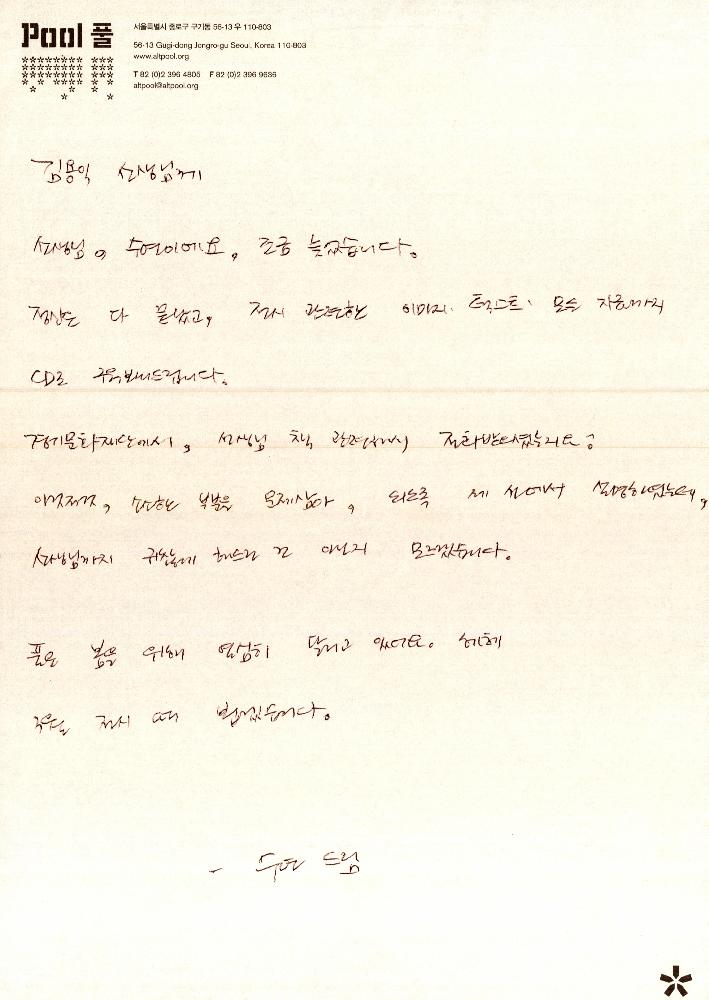 Pool 풀
서울특별시 종로구 구기동 56-13 우 110-803
56-13 Gugi-dong Jongro-gu Seoul, Korea 110-803
www.altpool.org
T 82 (0)2 396 4805 F 82 (0)2 396 9636
altpool@altpool.org
김용익 선생님께
선생님, 수연이에요, 조금 늦었습니다.
정산은 다 끝났고, 전시 관련한 이미지. 텍스트. 모두
CD로 구워보내드립니다.
경기문화재단에서, 선생님 책 관련해서 전화받으셨는지요?
이것저것, 부분을 문제삼아, 되도록 제 선에서 설명하였는데,
선생님까지 귀찮게 해드린 건 아닌지 모르겠습니다.
풀은 봄을 위해 열심히 달리고 있어요. 헤헤
전시 때 뵙겠습니다.
- 수연 드림